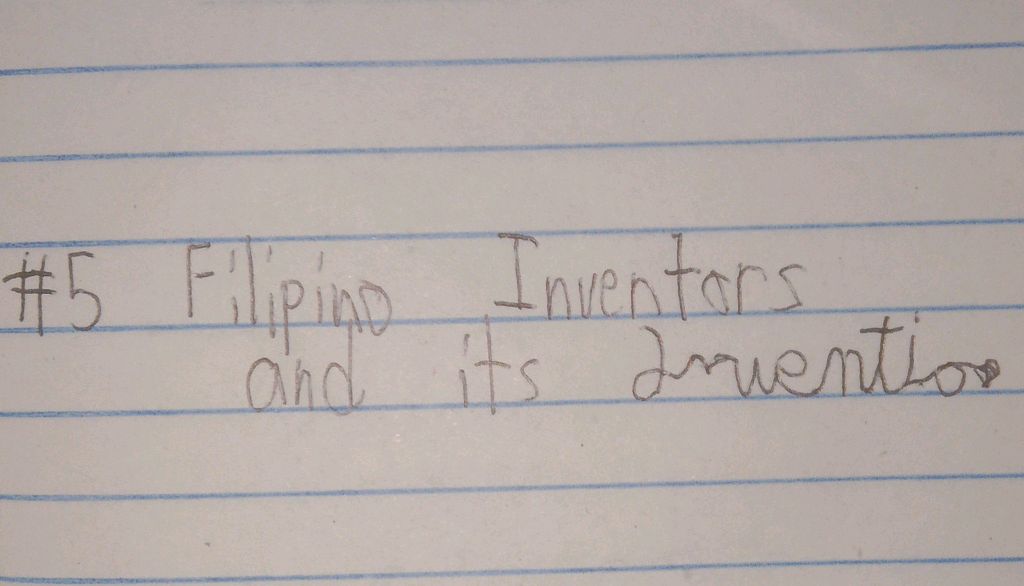 #5 Filipino Inventors
and its Invention